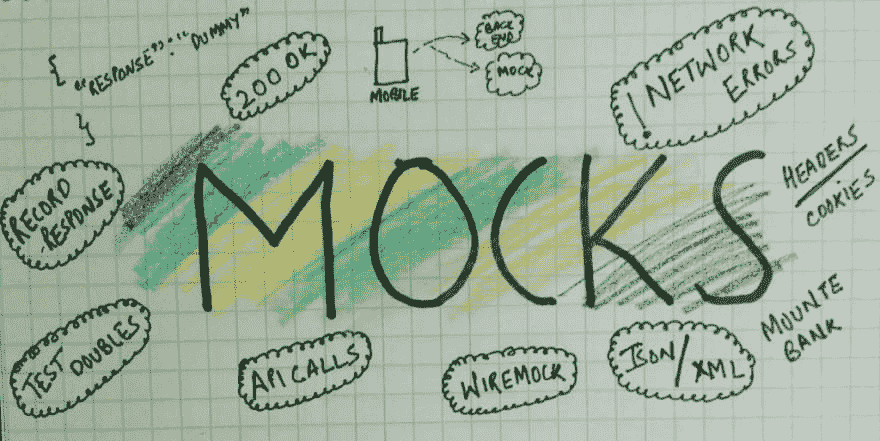 {
"RESPONSE" : "DUMMY"
}
200 OK
MOBILE
BACK
END
MOCK
! NETWORK
ERRORS
RECORD
RESPONSE
MOCKS
HEADERS
COOKIES
TEST DOUBLES
API CALLS
WIREMOCK
JSON/XML
MOUNTE
BANK